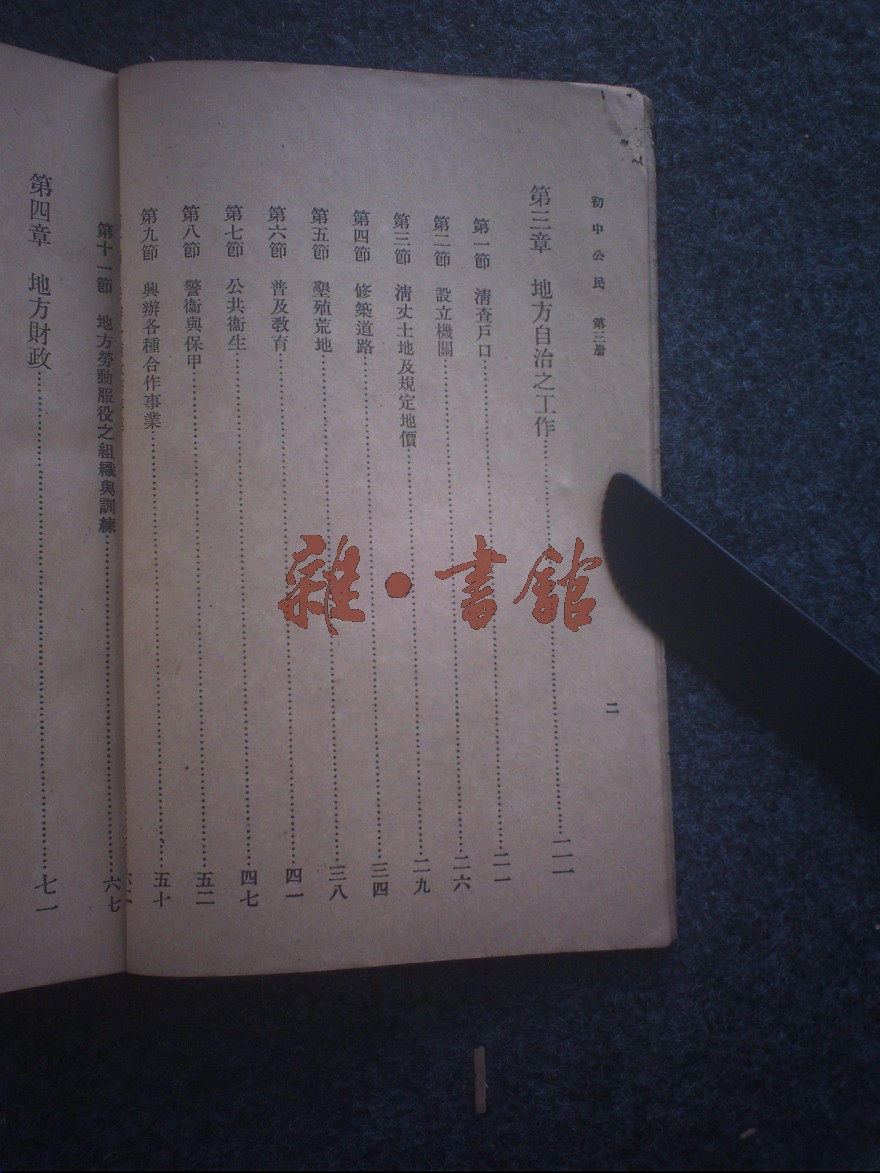 初中公民 第三册
二
第三章 地方自治之工作 二一
第一節 清查戶口 二一
第二節 設立機關 二六
第三節 清丈土地及規定地價 二九
第四節 修築道路 三四
第五節 墾殖荒地 三八
第六節 普及教育 四一
第七節 公共衞生 四七
第八節 警衞與保甲 五二
第九節 興辦各種合作事業 五十
第十一節 地方勞動服役之組織與訓練 六七
第四章 地方財政 七一
雜·書館